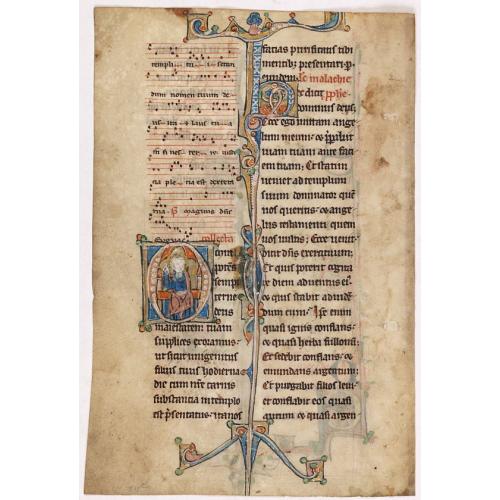 templi tu i secun
dum nomen tuum de
us ita & laus tu a
in fi nes ter re iusti
cia ple na est dextera
tua. magnus dñs
collecta
Omni
potēs
sempi
terne
deus
maiestatem tuam
supplices exoramus
ut sicut unigenitus
filius tuus hodierna
die cum nr̄e carnis
substantia in templo
est p̄sentatus. ita nos
facias purificatis tibi
mentibꝫ presentari. p
eundem. malachie
ec dicit
dominus deus.
Ecce ego mittam ange
lum meum. & p̄parabit
uiam tuam ante faci
em tuam. Et statim
ueniet ad templum
suum dominator quē
uos queritis. & ange
lus testamenti quem
uos uultis. Ecce uenit
dicit dñs exercituum.
Et quis poterit cogita
re diem aduentus eiꝰ
& quis stabit ad uidē
dum eum. Ipse enim
quasi ignis conflans.
& quasi herba fullonū.
Et sedebit conflans. &
emundans argentum.
Et purgabit filios leui.
et conflabit eos quasi
aurum & quasi argen